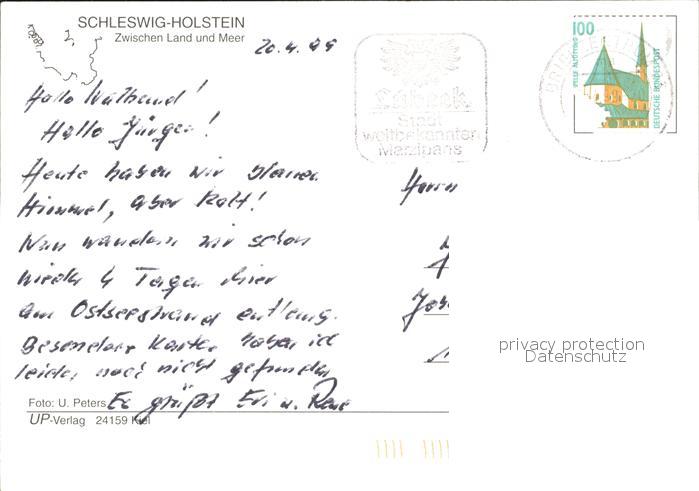 SCHLESWIG-HOLSTEIN
Zwischen Land und Meer
20.4.99
Hallo !
Hallo Jürgen!
Heute haben wir blauen
Himmel, aber kalt!
Nun wandern wir schon
wieder 4 Tage hier
am Ostseestrand entlang.
Besondere Karten habe ich
leider noch nicht gefunden
Es grüßt Evi u. René
Foto: U. Peters
UP-Verlag 24159 Kiel
Lübeck
Stadt
weltbekannten
Marzipans
100
DEUTSCHE BUNDESPOST
ALTÖTTING
Herrn
privacy protection
Datenschutz